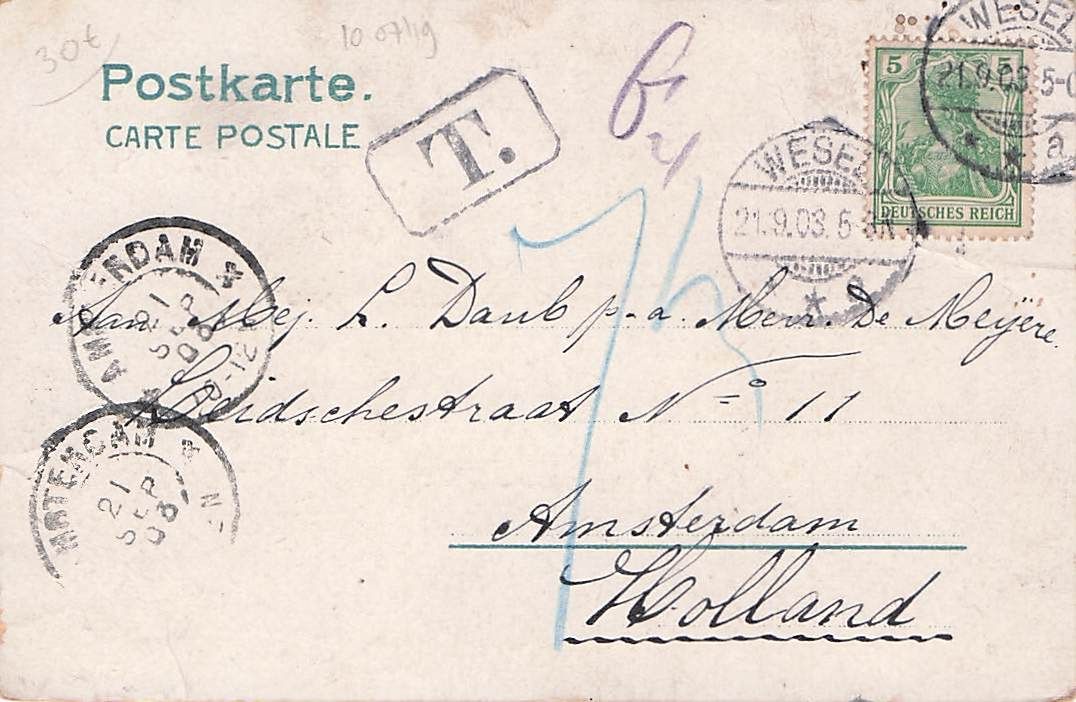 30€
10 07/19
Postkarte.
CARTE POSTALE
T.
WESEL
21.9.03.5-6
a
5 5
DEUTSCHES REICH
WESEL
21.9.03.5-6N
a
AMSTERDAM
21
SEP
03
Aan Mej. L. Daub p.a. Mevr. De Meijere.
Leidschestraat No 11
Amsterdam
Holland
AMSTERDAM
21
SEP
03